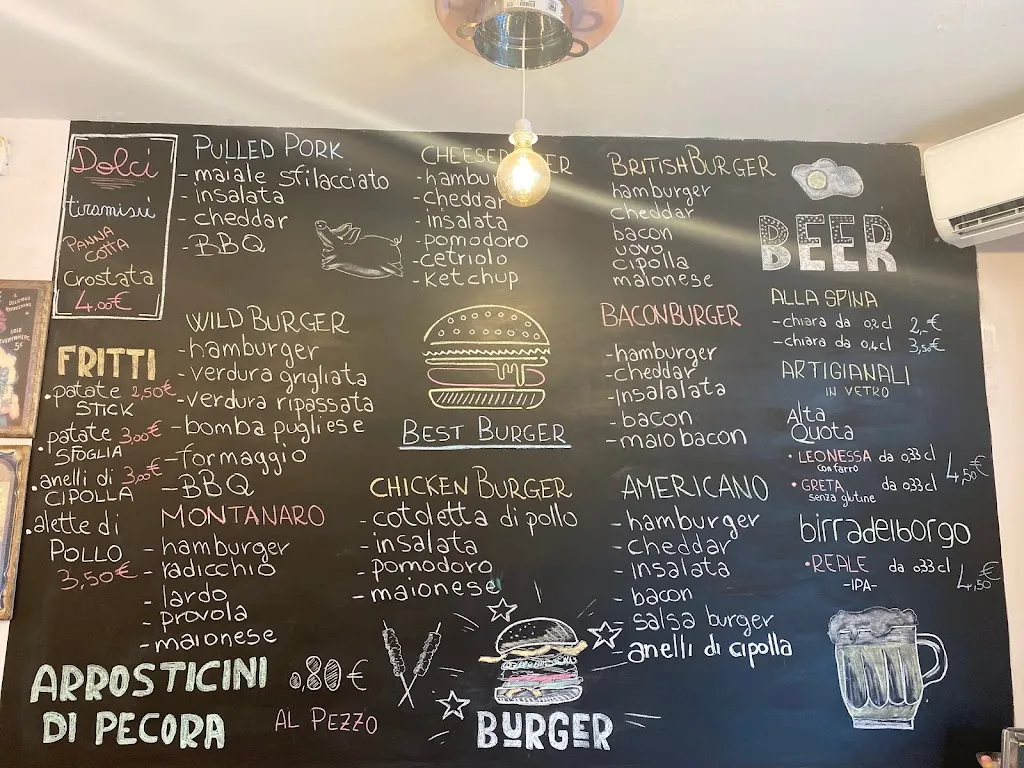 Dolci
tiramisù
PANNA
COTTA
Crostata
4,00€
FRITTI
.patate 2,50€
STICK
.patate 3,00€
SFOGLIA
.anelli di 3,00€
CIPOLLA
.alette di
POLLO
3,50€
PULLED PORK
- maiale sfilacciato
- insalata
- cheddar
- BBQ
WILD BURGER
- hamburger
- verdura grigliata
- verdura ripassata
- bomba pugliese
- formaggio
- BBQ
MONTANARO
- hamburger
- radicchio
- lardo
- provola
- maionese
ARROSTICINI
DI PECORA
0,80€
AL PEZZO
- cheddar
- insalata
- pomodoro
- cetriolo
- ketchup
BEST BURGER
CHICKEN BURGER
- cotoletta di pollo
- insalata
- pomodoro
- maionese
BURGER
BRITISH BURGER
hamburger
cheddar
bacon
uovo
cipolla
maionese
BACON BURGER
- hamburger
- cheddar
- insalalata
- bacon
- maio bacon
AMERICANO
- hamburger
- cheddar
- insalata
- bacon
- salsa burger
- anelli di cipolla
BEER
ALLA SPINA
- chiara da 0,2cl 2,-€
- chiara da 0,4cl 3,50€
ARTIGIANALI
IN VETRO
Alta
Quota
• LEONESSA da 0,33cl 4,50€
con farro
• GRETA da 0,33cl
senza glutine
birradelborgo
• REALE da 033cl 4,50€
-IPA-